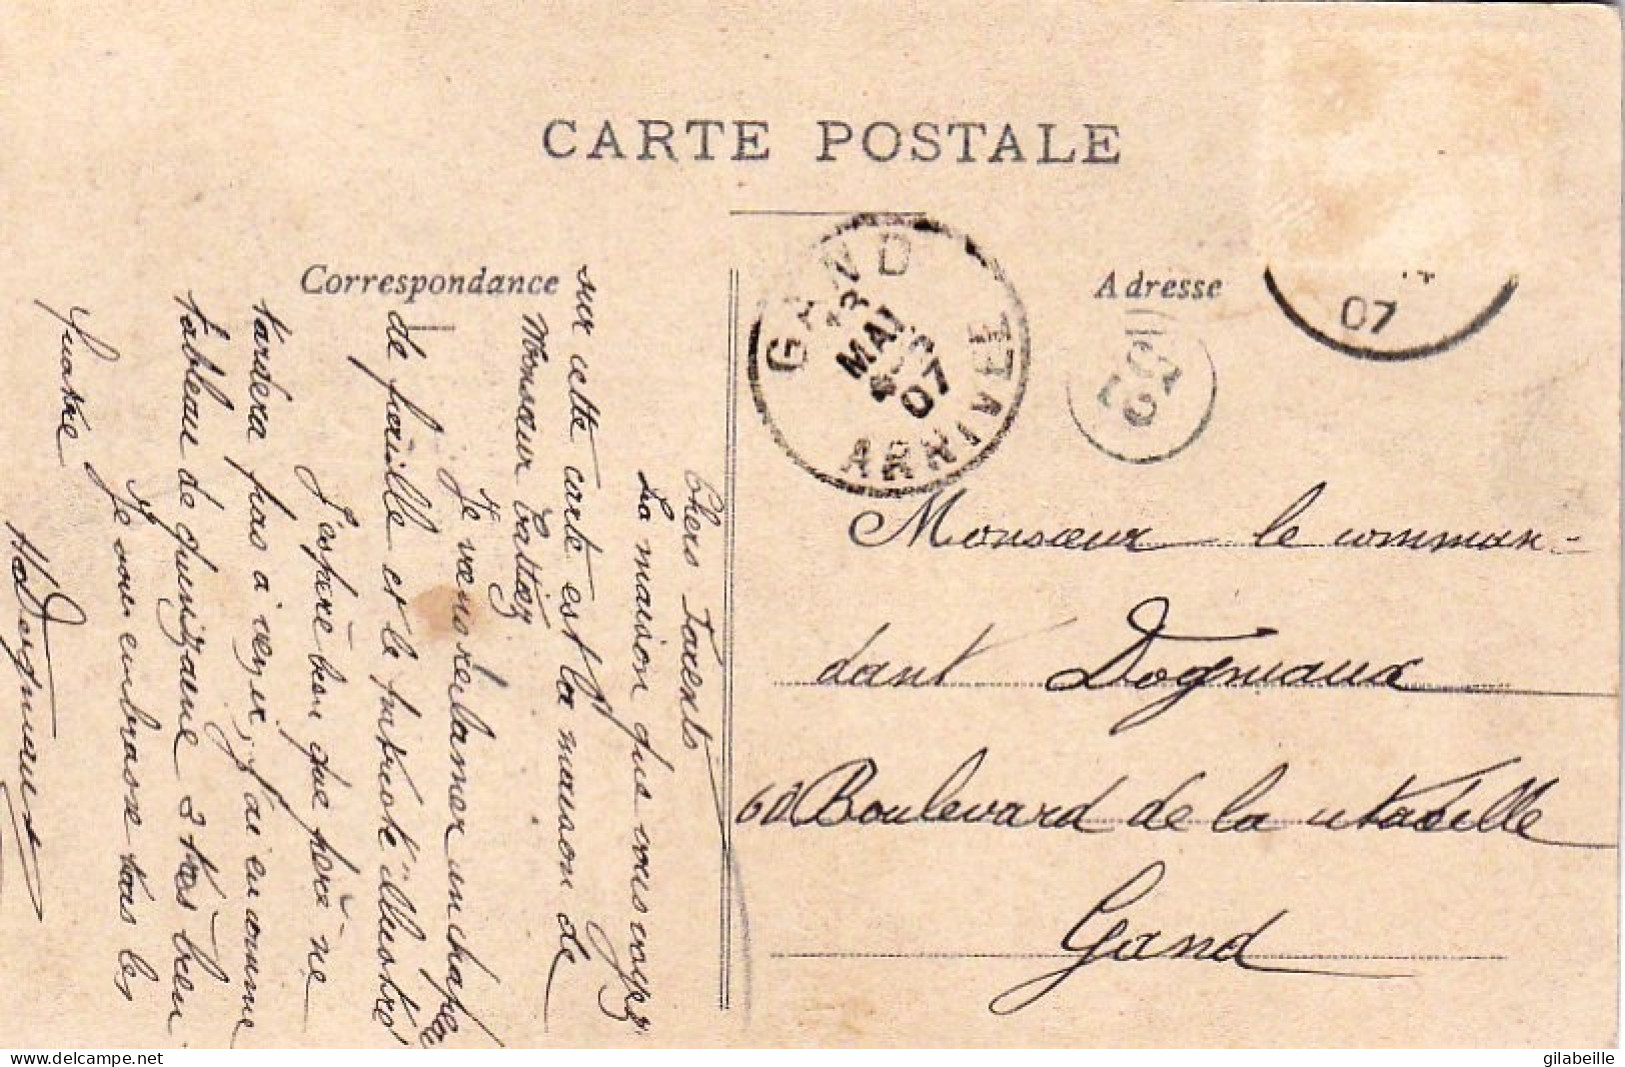 CARTE POSTALE
Correspondance
Adresse
GAND
13
MAI
07
ARRIVEE
07
Chers Parents
La maison que vous voyez
sur cette carte est la maison de
Monsieur
Je viens réclamer un chapeau
de paille et le patriote illustré
J'espère bien que père ne
tardera pas à venir, j'ai eu comme
tableau de quinzaine 2 très bien
Je vous embrasse tous les
quatre
HDogniaux
Monsieur le comman-
dant Dogniaux
60 Boulevard de la citadelle
Gand
www.delcampe.net
gilabeille